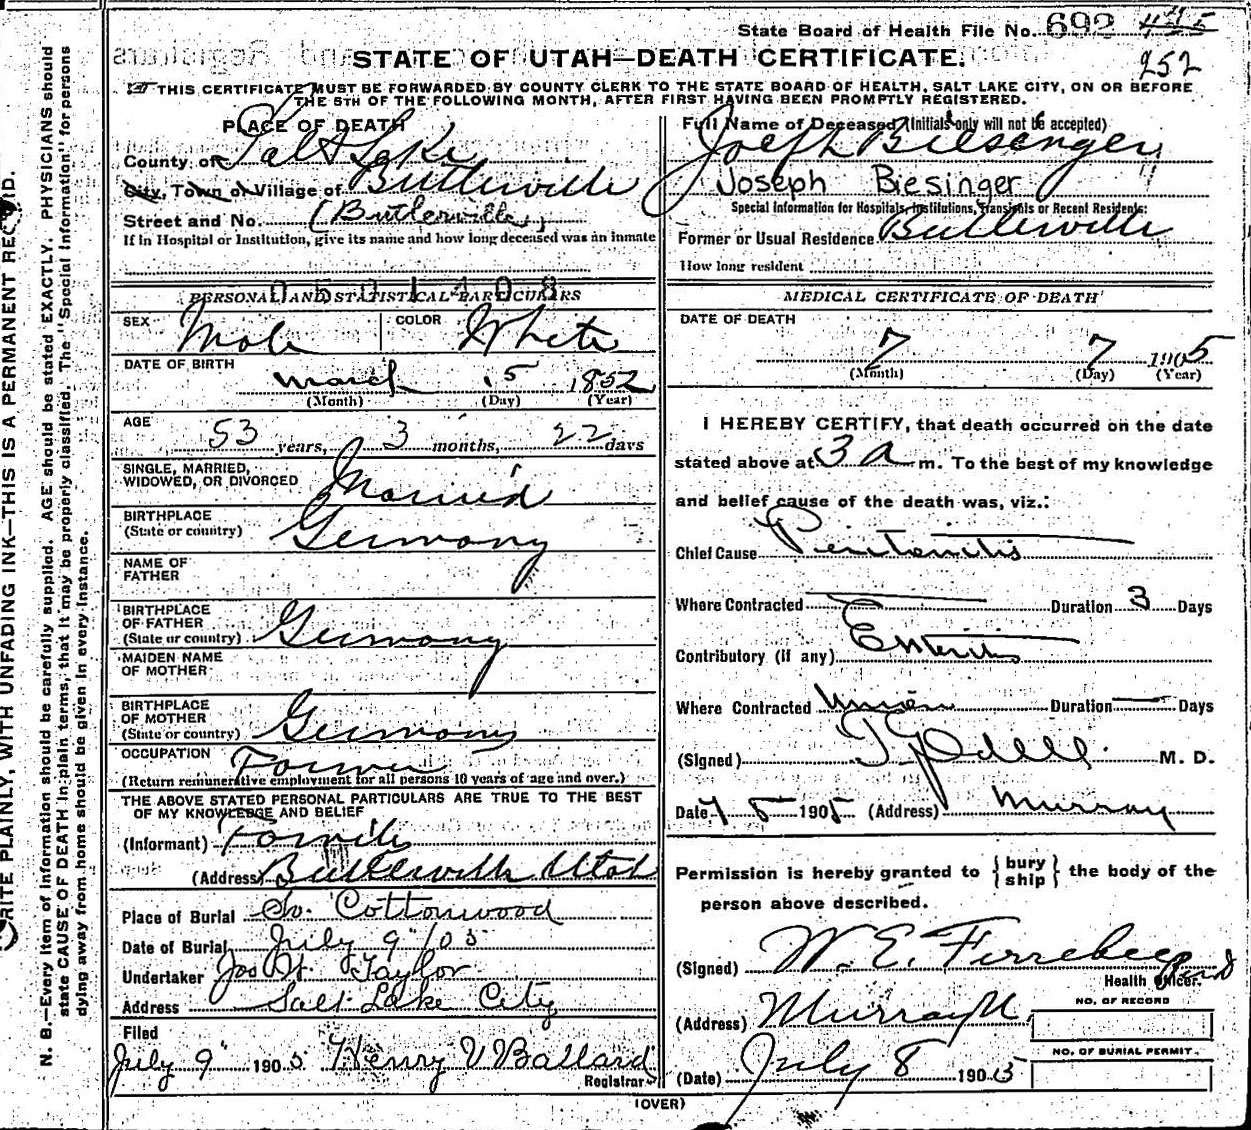 State Board of Health File No. 692
252
STATE OF UTAH—DEATH CERTIFICATE.
THIS CERTIFICATE MUST BE FORWARDED BY COUNTY CLERK TO THE STATE BOARD OF HEALTH, SALT LAKE CITY, ON OR BEFORE
THE 5TH OF THE FOLLOWING MONTH, AFTER FIRST HAVING BEEN PROMPTLY REGISTERED.
PLACE OF DEATH
County of Salt Lake
City, Town or Village of Butlerville
Street and No. (Butlerville)
If in Hospital or Institution, give its name and how long deceased was an inmate
PERSONAL AND STATISTICAL PARTICULARS
SEX Male COLOR White
DATE OF BIRTH
March 15 1852
(Month) (Day) (Year)
AGE
53 years, 3 months, 22 days
SINGLE, MARRIED,
WIDOWED, OR DIVORCED Married
BIRTHPLACE
(State or country) Germany
NAME OF
FATHER
BIRTHPLACE
OF FATHER
(State or country) Germany
MAIDEN NAME
OF MOTHER
BIRTHPLACE
OF MOTHER
(State or country) Germany
OCCUPATION Farmer
(Return remunerative employment for all persons 10 years of age and over.)
THE ABOVE STATED PERSONAL PARTICULARS ARE TRUE TO THE BEST
OF MY KNOWLEDGE AND BELIEF
(Informant)
(Address) Butlerville Utah
Place of Burial So. Cottonwood
Date of Burial July 9" 05
Undertaker Jos Wm. Taylor
Address Salt Lake City
Filed
July 9" 1905 Henry V Ballard
Registrar
Full Name of Deceased (Initials only will not be accepted)
Joseph Biesenger
Joseph Biesinger
Special Information for Hospitals, Institutions, Transients or Recent Residents:
Former or Usual Residence Butlerville
How long resident
MEDICAL CERTIFICATE OF DEATH
DATE OF DEATH
7 7 1905
(Month) (Day) (Year)
I HEREBY CERTIFY, that death occurred on the date
stated above at 3 a m. To the best of my knowledge
and belief cause of the death was, viz.:
Chief Cause Peritonitis
Where Contracted Duration 3 Days
Contributory (if any) Enteritis
Where Contracted Union Duration — Days
(Signed) M. D.
Date 7 8 1905 (Address) Murray
Permission is hereby granted to {bury
ship} the body of the
person above described.
(Signed) W. E. Ferrebee
Health Officer.
NO. OF RECORD
(Address) Murray U
NO. OF BURIAL PERMIT.
(Date) July 8 1905
(OVER)
WRITE PLAINLY, WITH UNFADING INK—THIS IS A PERMANENT RECORD.
N. B.—Every item of information should be carefully supplied. AGE should be stated EXACTLY. PHYSICIANS should
state CAUSE OF DEATH in plain terms, that it may be properly classified. The "Special Information" for persons
dying away from home should be given in every instance.